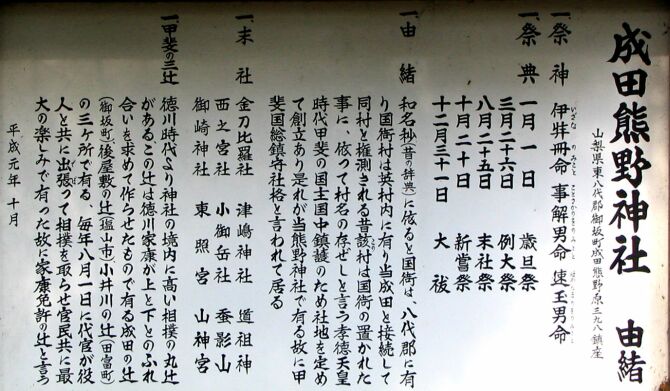 成田熊野神社 由緒
山梨県東八代郡御坂町成田熊野原三九八鎮座
一、祭神 伊弉冊命 事解男命 速玉男命
いざなみのみこと ことさかのおのみこと はやたまおのみこと
一、祭典 一月一日 歳旦祭
三月二十六日 例大祭
八月二十五日 末社祭
十月二十日 新嘗祭
十二月三十一日 大祓
一、由緒 和名抄(昔の辞典)に依ると国衙は、八代郡に有
り国衙村は英村内に有り当成田と接続して
同村と推測される昔該村は国衙の置かれた
事に、依って村名の存ぜしと言う孝徳天皇
時代甲斐の国主国中鎮護のため社地を定め
て創立あり是れが当熊野神社で有る故に甲
斐国総鎮守社格と言われて居る
一、末社 金刀比羅社 津嶋神社 道祖神
西之宮社 小御岳社 蚕影山
御崎神社 東照宮 山神宮
一、甲斐の三辻 徳川時代より神社の境内に高い相撲の丸辻
があるこの辻は徳川家康が上と下とのふれ
合いを求めて作らせたもので有る成田の辻
(御坂町)後屋敷の辻(塩山市)小井川の辻(田富町)
の三ヶ所で有る、毎年八月一日に代官が役
人と共に出張って相撲を取らせ官民共に最
大の楽しみで有った故に家康免許の辻と言う
平成元年十月